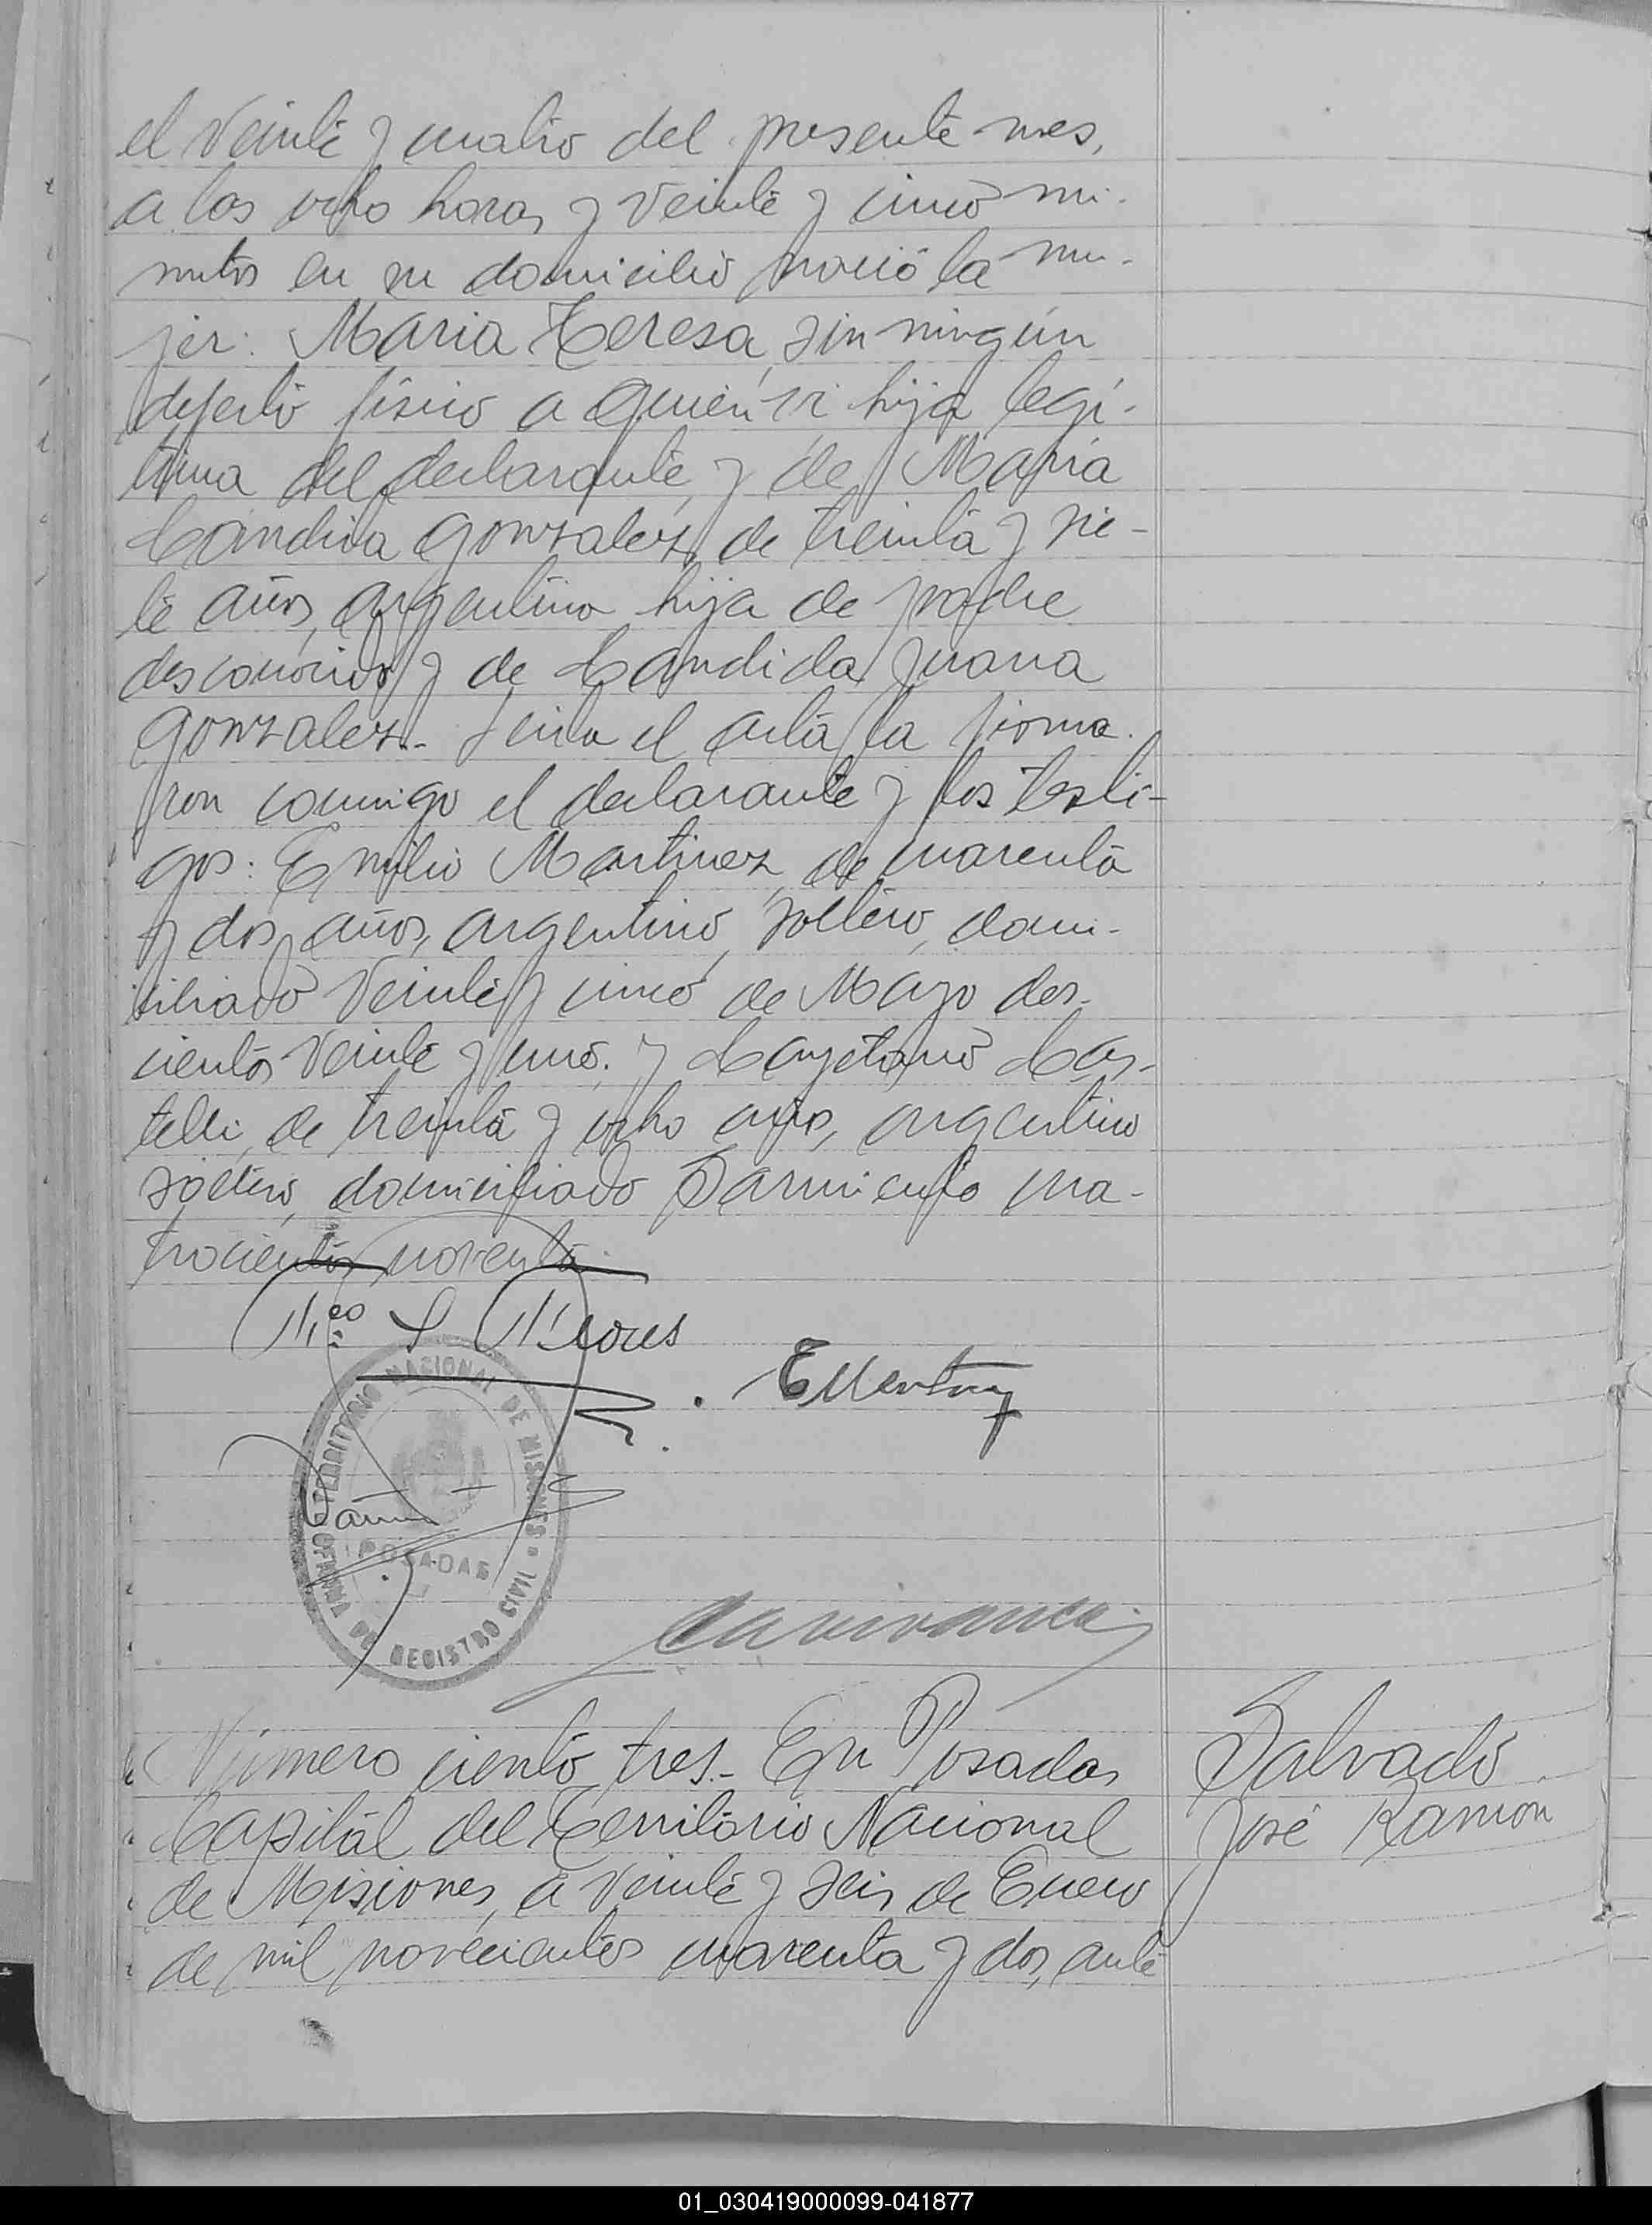 el veinte y cuatro del presente mes,
a las ocho horas y veinte y cinco mi-
nutos en su domicilio nació la mu-
jer: Maria Teresa, sin ningún
defecto físico a quien vi hija legí-
tima del declarante, y de Maria
Candida Gonzalez, de treinta y sie-
te años, argentina hija de padre
desconocido y de Candida Juana
Gonzalez.- Leida el acta la firma-
ron conmigo el declarante y los testi-
gos: Emilio Martinez, de cuarenta
y dos años, argentino, soltero, domi-
ciliado Veinte y cinco de Mayo dos-
cientos veinte y uno. y Cayetano Cas-
telli, de treinta y ocho años, argentino
soltero, domiciliado Sarmiento cua-
trocientos noventa.
Flores
EMartinez
TERRITORIO NACIONAL DE MISIONES
POSADAS
OFICINA DE REGISTRO CIVIL
Número ciento tres.- En Posadas
Capital del Territorio Nacional
de Misiones, a veinte y seis de Enero
de mil novecientos cuarenta y dos, ante
Salvado
José Ramon
01_030419000099-041877